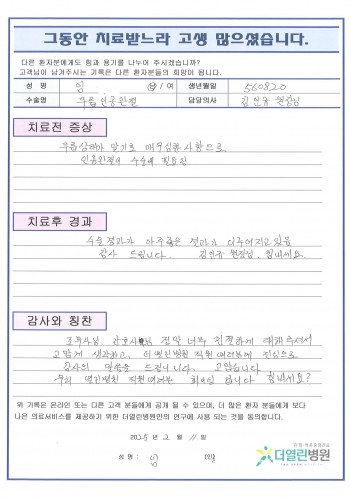 그동안 치료받느라 고생 많으셨습니다.
다른 환자분에게도 힘과 용기를 나누어 주시겠습니까?
고객님이 남겨주시는 기록은 다른 환자분들의 희망이 됩니다.
성 명 임 남 / 여 생년월일 560820
수술명 무릎인공관절 담당의사 김 원장님
치료전 증상
무릎상태가 말기로 매우심한 사람으로
인공관절의 수술이 필요함
치료후 경과
수술경과가 아주좋은 결과가 이루어지고있음
감사 드립니다. 김 원장님. 힘내세요.
감사와 칭찬
간호사님 정말 너무 친절하게 대해주셔서
고맙게 생각하고, 더열린병원 직원여러분께 진심으로
감사의 말씀을 드립니다. 고맙습니다
우리 열린병원 직원여러분 화이팅 합니다 힘내세요?
위 기록은 온라인 또는 다른 고객 분들에게 공개 될 수 있으며, 더 많은 환자 분들에게 보다
나은 의료서비스를 제공하기 위한 더열린병원만의 연구에 사용 되는 것을 동의합니다.
2025년 2월 11일
성 명 : 임 (인)
더열린병원